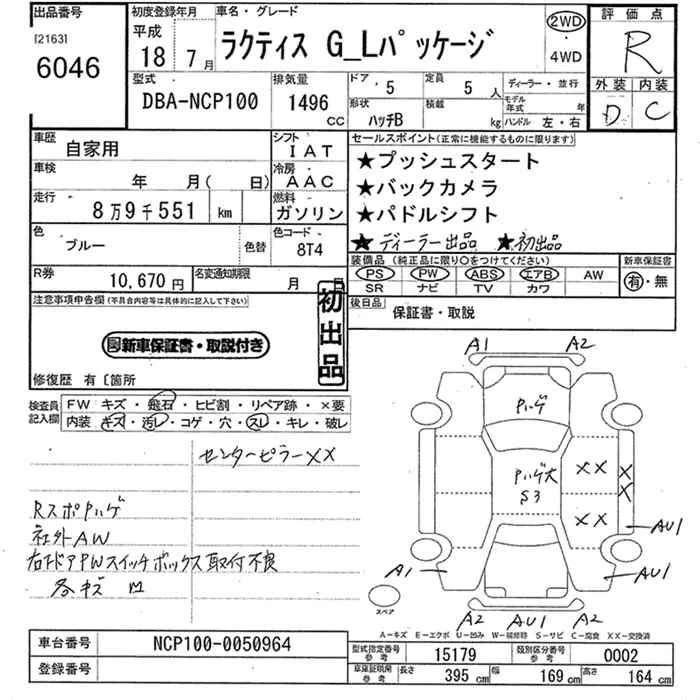 出品番号
[2163]
6046
初度登録年月
平成
18 7月
車名・グレード
ラクティス G_Lパッケージ
2WD
・
4WD
評価点
R
外装 内装
D C
型式
DBA-NCP100
排気量
1496
CC
ドア 5
定員 5人
形状 ハッチB
積載 kg
ディーラー・並行
モデル年式 年
ハンドル 左・右
車歴
自家用
シフト
IAT
車検
年 月( 日)
冷房
AAC
走行
8万9千551 km
燃料
ガソリン
色
ブルー
色替
色コード
8T4
R券
10,670円
名変通知期限
月 日
セールスポイント(正常に機能するものに限ります)
★プッシュスタート
★バックカメラ
★パドルシフト
★ディーラー出品 ★初出品
装備品(純正品に限り○をつけてください)
PS PW ABS エアB AW
SR ナビ TV カワ
新車保証書
有・無
後日品
保証書・取説
注意事項申告欄(不具合内容等は具体的に記入して下さい)
新車保証書・取説付き
初出品
修復歴 有〔箇所
検査員
記入欄
FW キズ・飛石・ヒビ割・リペア跡・×要
内装 キズ・汚レ・コゲ・穴・スレ・キレ・破レ
センターピラーXX
RスポPハゲ
社外AW
右ドアPWスイッチボックス取付不良
各キズ M
A1 A2
Pハゲ
Pハゲ大
S3
XX
XX
XX
AU1
A1
AU1
A2 AU1 A2
スペア
A-キズ E-エクボ U-凹み W-補修跡 S-サビ C-腐食 XX-交換済
車台番号
NCP100-0050964
登録番号
型式指定番号
参考
15179
類別区分番号
参考
0002
車庫証明用
参考
長さ 395cm
幅 169cm
高さ 164cm